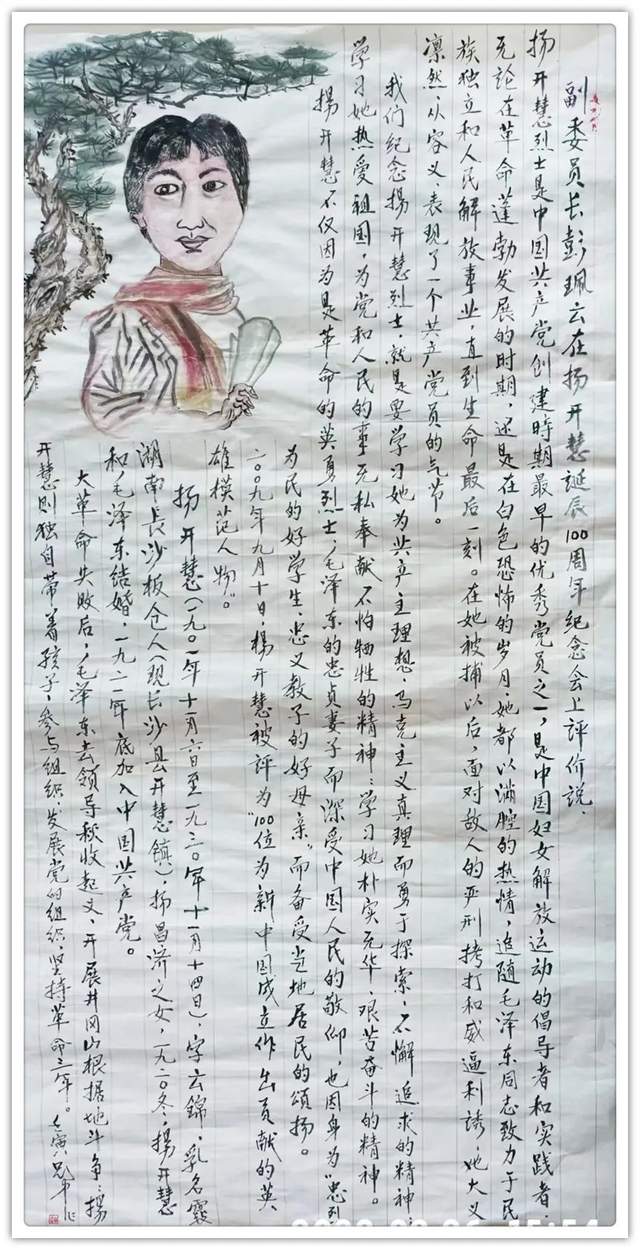 副委员长彭珮云在扬开慧誕辰100周年纪念会上评价说、
扬开慧烈士是中国共产党创建時期最早的优秀党员之一,是中国妇女解放运动的倡导者和实践者,
无论在革命蓬勃发展的时期,还是在白色恐怖的岁月,她都以满腔的热情,追随毛泽东同志致力于民
族独立和人民解放事业,直到生命最后一刻。在她被捕以后,面对敌人的严刑拷打和威逼利誘,她大义
凛然,从容义、表现了一个共产党员的气节。
我们纪念揚开慧烈士,就是要学习她为共产主理想,马克主义真理而勇于探索,不懈追求的精神,
学习她热爱祖国,为党和人民的事无私奉献不怕牺牲的精神:学习她朴实无华,艰苦奋斗的精神。
揚开慧不仅因为是革命的英勇烈士,毛泽东的忠贞妻子而深受中国人民的敬仰,也因身为“忠烈
为民的好学生,忠义教子的好母亲”而备受当地居民的颂扬。
二00九年九月十日,楊开慧被评为“100位为新中国成立作出贡献的英
雄模范人物”。
扬开慧(一九0一年十一月六日至一九三0年十一月十四日),字云錦,乳名霞
湖南長沙板仓人(现长沙县开慧鎮),扬昌济之女,一九二0冬,揚开慧
和毛泽东结婚,一九二一年底加入中国共产党。
大革命失败后,毛泽东去领导秋收起义,开展井冈山根据地斗争,揚
开慧则独自带着孩子,参与组织、发展党的组织,坚持革命三年。壬寅